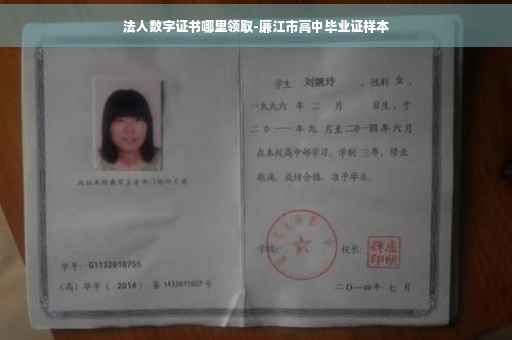 法人数字证书哪里领取-廉江市高中毕业证样本
学生 刘婉玲 ,性别 女 ,
一九九六 年 二 月 日生,于
二〇一一年九 月至二〇一四年 六月
在本校高中部学习,学制 三年,修业
期满,成绩合格,准予毕业。
学号: G1132010755
(高)毕字( 2014 )第 1432011027 号
学校: 校长:
二〇一四年 七 月